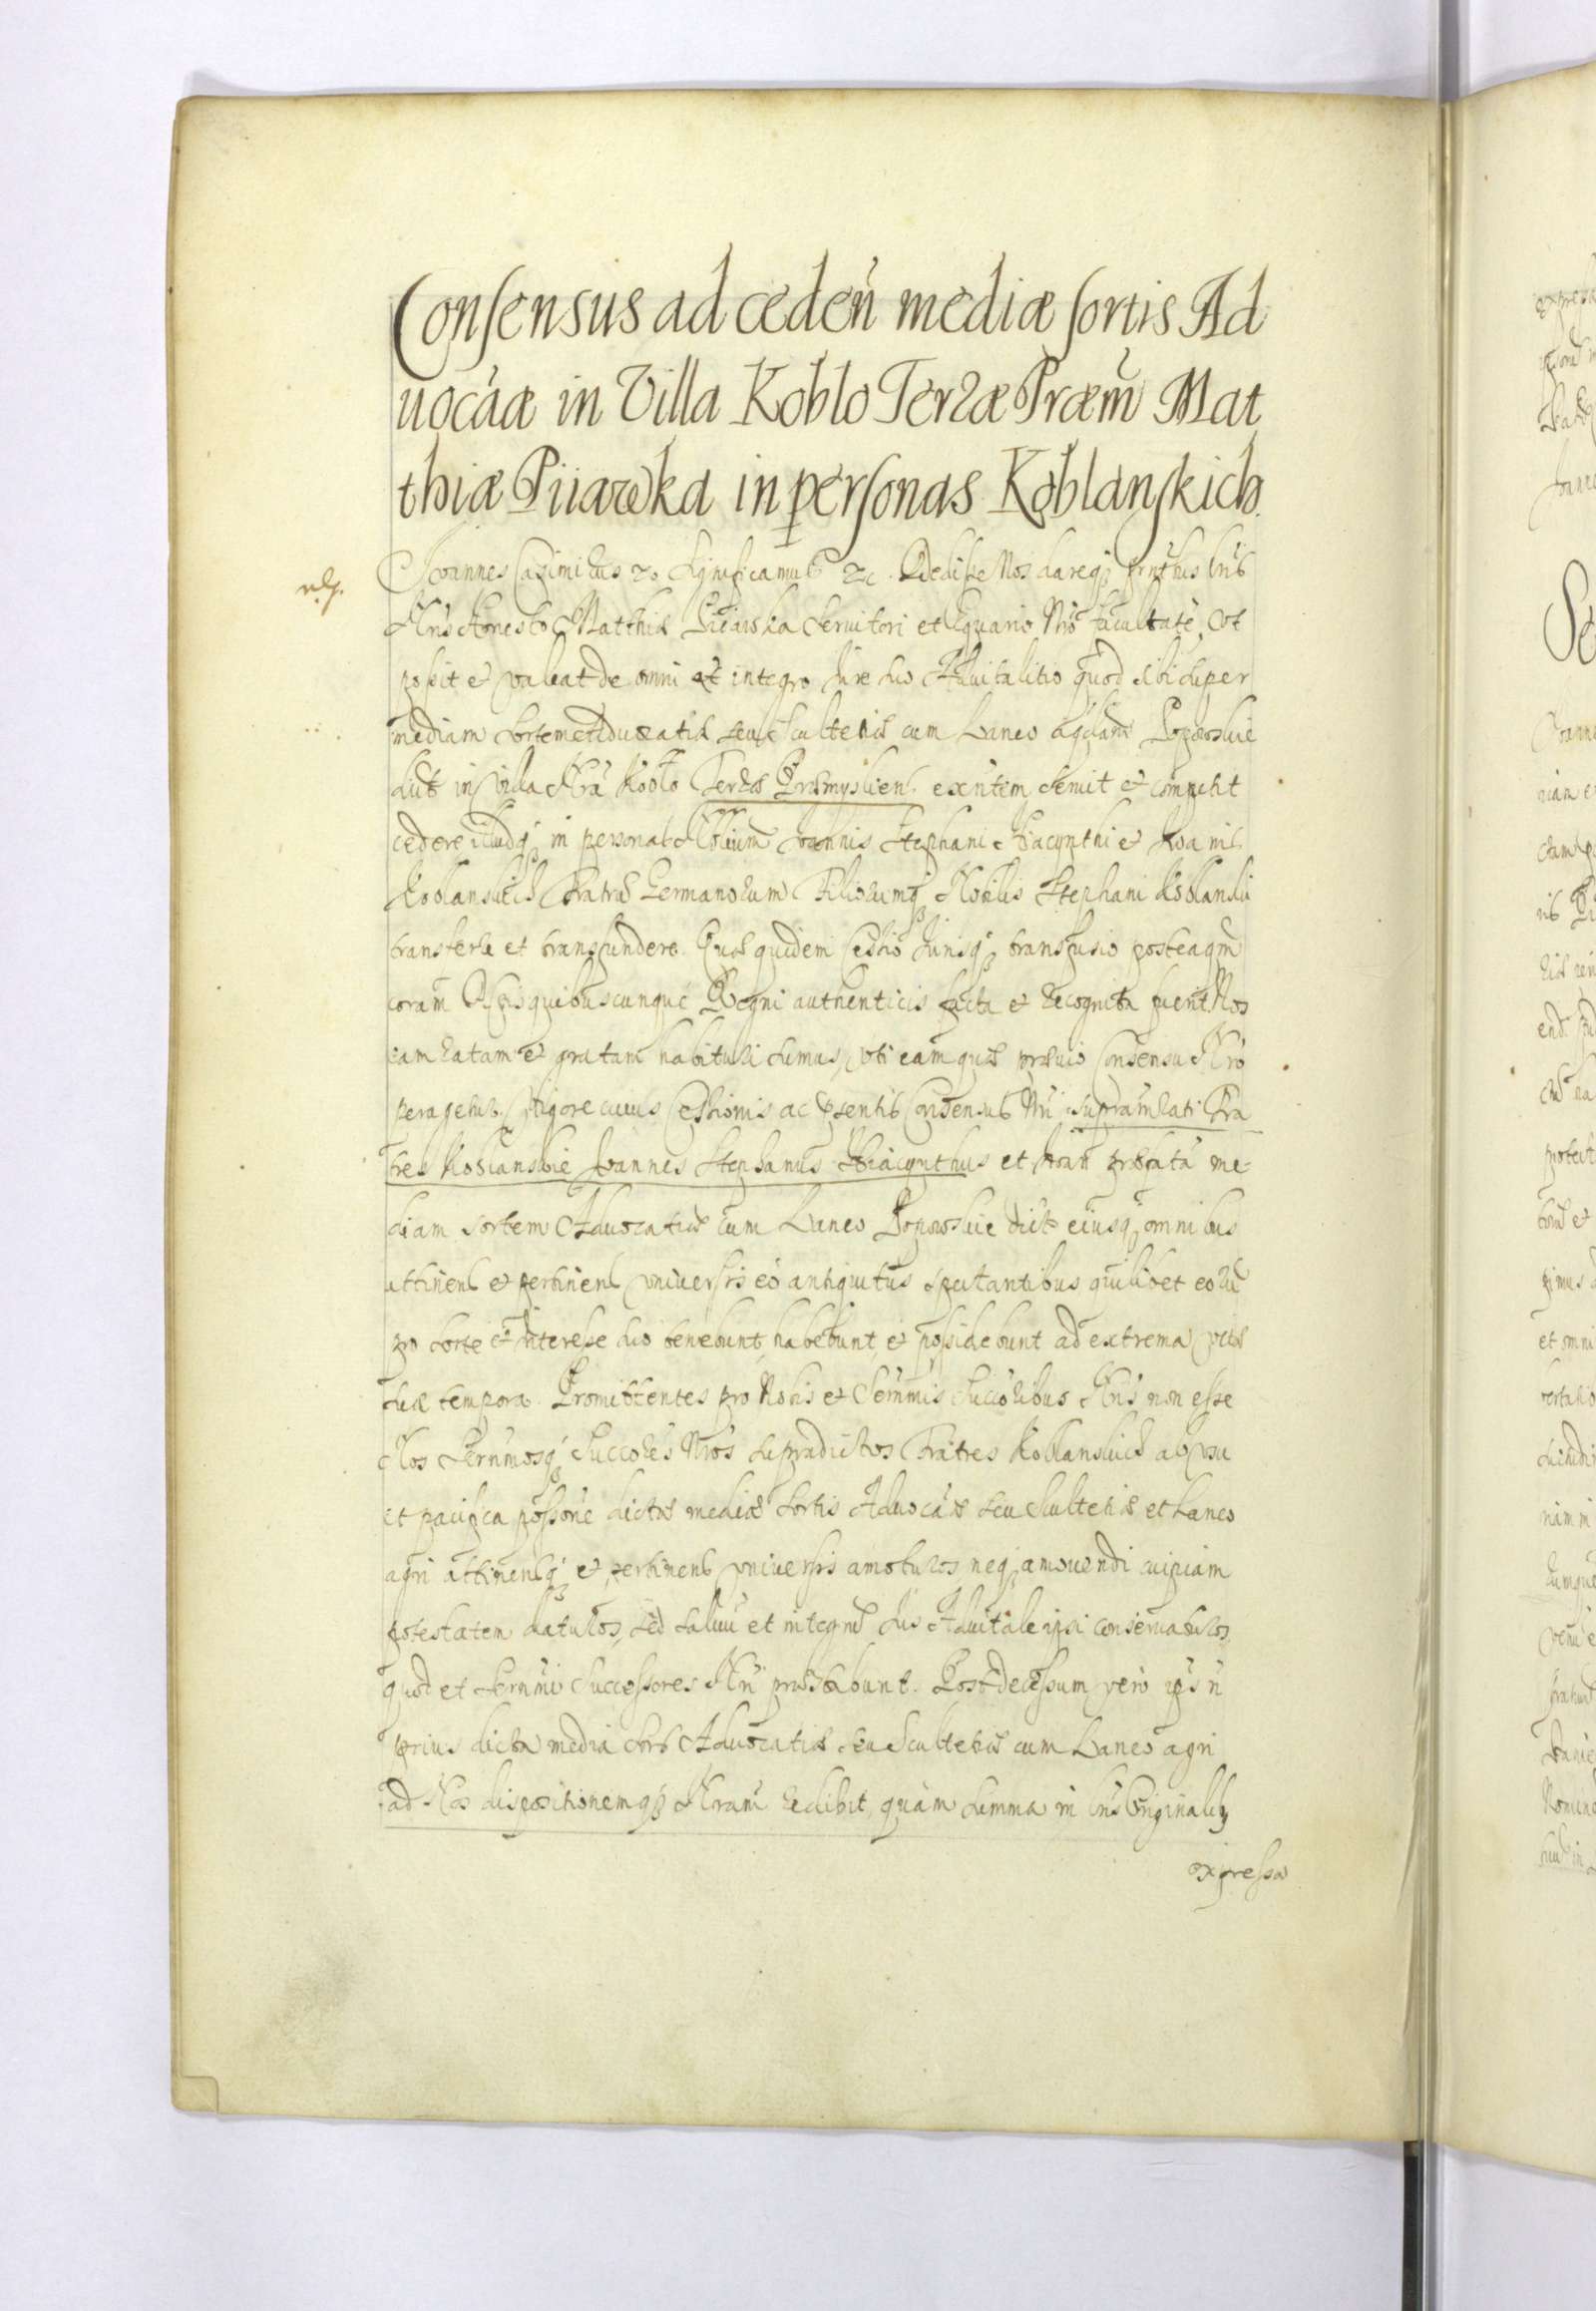 Consensus ad ceden̄ mediæ sortis Ad
uocāæ in Villa Koblo Terræ Præm̄ Mat
thiæ Piiawka in personas Koblanskich.
Joannes Casimirus &c. Significamus &c. Dedisse Nos daregȝ prnthis lris
Nris Honesto Matthiæ Piiawka Seruitori et Nro facultatē, vt
possit et valeat de omni et integro Jure suo Aduitalitio quod sibi super
mediam sortem Aduocatiæ seu Scultetiæ cum Laneo Popowskie
dict in Villa Nra Koblo Terræ Præmysliens. exntem seruit et competit
cedere illudqȝ in personas Nobilium Joannis Stephani Hiacynthi et
Koblanskich Fratrū Germanorum Filiorumqȝ Nobilis Stephani Koblanski
transferre et transfundere. Quæ quidem Cessio Jurisqȝ transfusio posteaqm̄
coram Actis quibuscunque Regni authenticis facta et recognita fuerit Nos
eam ratam et gratam habituri sumus, vti eam quæ præuio Consensu Nro
peragetur. Vigore cuius Cessionis ac pntis Consensus Nri supramlati Fra
tres Koblanskie Joannes Stephanus Hiacynthus et præfatā me
diam sortem Aduocatiæ cum Laneo Popowskie dict eiusqȝ omnibus
attinens et pertinens vniuersis eo antiquitus spectantibus quilibet eorū
pro sorte et Interesse suo tenebunt, habebunt, et possidebunt ad extrema vitæ
suæ tempora. Promittentes pro Nobis et Sermmis Succoribus Nris non esse
Nos Sermmosqȝ Succores Nros supradictos Fratres Koblanskich ab vsu
et pacifica possone dictæ mediæ sortis Aduocāæ seu Scultetiæ et Laneo
agri attinensqȝ et pertinens vniuersis amoturos neqȝ amouendi cuipiam
potestatem daturos, sed saluū et integrū Jus Aduitale ipsi conseruaturos
quod et Sermmi Successores Nri præstabunt. Post decessum vero
prius dicta media sors Aduocatiæ seu Scultetiæ cum Laneo agri
ad Nos dispositionemqȝ Nram redibit, quam summa in lris Originalibȝ
expressa